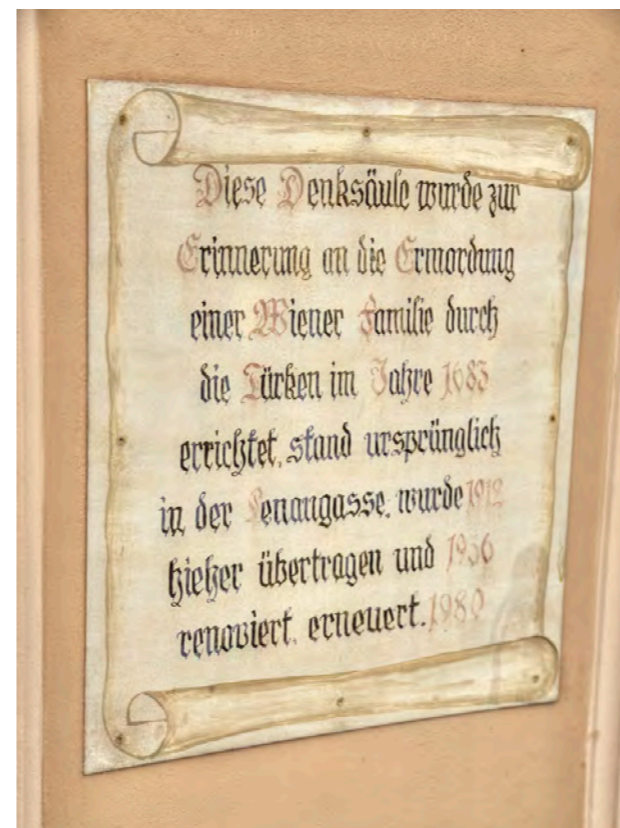 Diese Denksäule wurde zur
Erinnerung an die Ermordung
einer Wiener Familie durch
die Türken im Jahre 1683
errichtet, stand ursprünglich
in der Lenaugasse, wurde 1912
hieher übertragen und 1956
renoviert, erneuert. 1980